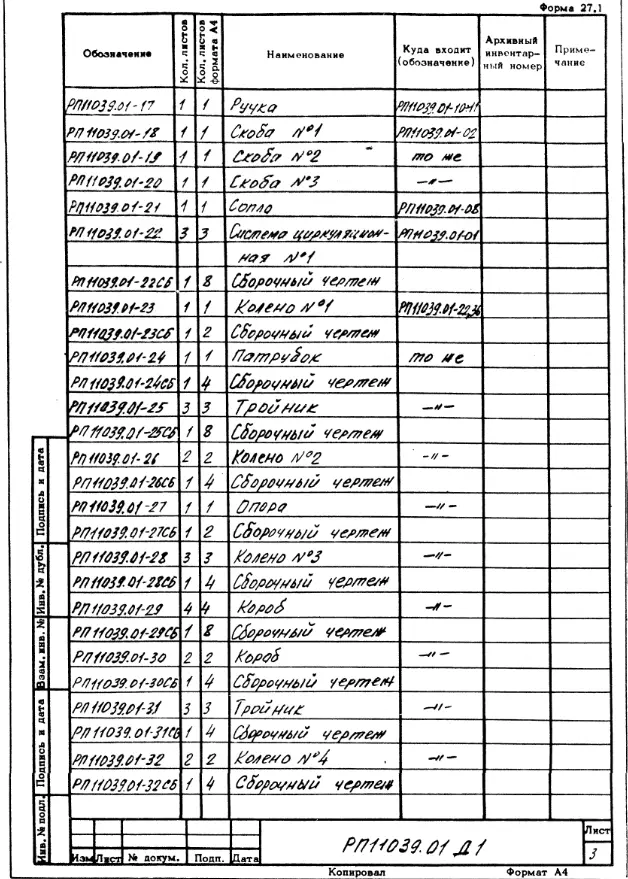 Форма 27.1
Обозначение Кол. листов Кол. листов формата А4 Наименование Куда входит (обозначение) Архивный инвентар-ный номер Приме-чание
РП11039.01-17 1 1 Ручка РП11039.01-10
РП11039.01-18 1 1 Скоба №1 РП11039.01-02
РП11039.01-19 1 1 Скоба №2 то же
РП11039.01-20 1 1 Скоба №3 —"—
РП11039.01-21 1 1 Сопло РП11039.01-08
РП11039.01-22 3 3 Система циркуляцион- РП11039.01-01
ная №1
РП11039.01-22СБ 1 8 Сборочный чертеж
РП11039.01-23 1 1 Колено №1 РП11039.01-22,36
РП11039.01-23СБ 1 2 Сборочный чертеж
РП11039.01-24 1 1 Патрубок то же
РП11039.01-24СБ 1 4 Сборочный чертеж
РП11039.01-25 3 3 Тройник —"—
РП11039.01-25СБ 1 8 Сборочный чертеж
РП11039.01-26 2 2 Колено №2 —"—
РП11039.01-26СБ 1 4 Сборочный чертеж
РП11039.01-27 1 1 Опора —"—
РП11039.01-27СБ 1 2 Сборочный чертеж
РП11039.01-28 3 3 Колено №3 —"—
РП11039.01-28СБ 1 4 Сборочный чертеж
РП11039.01-29 4 4 Короб —"—
РП11039.01-29СБ 1 8 Сборочный чертеж
РП11039.01-30 2 2 Короб —"—
РП11039.01-30СБ 1 4 Сборочный чертеж
РП11039.01-31 3 3 Тройник —"—
РП11039.01-31СБ 1 4 Сборочный чертеж
РП11039.01-32 2 2 Колено №4 —"—
РП11039.01-32СБ 1 4 Сборочный чертеж
Подпись и дата
Инв. № дубл.
Взам. инв. №
Подпись и дата
Инв. № подл.
Изм Лист № докум. Подп. Дата
РП11039.01 Д1
Лист
3
Копировал Формат А4